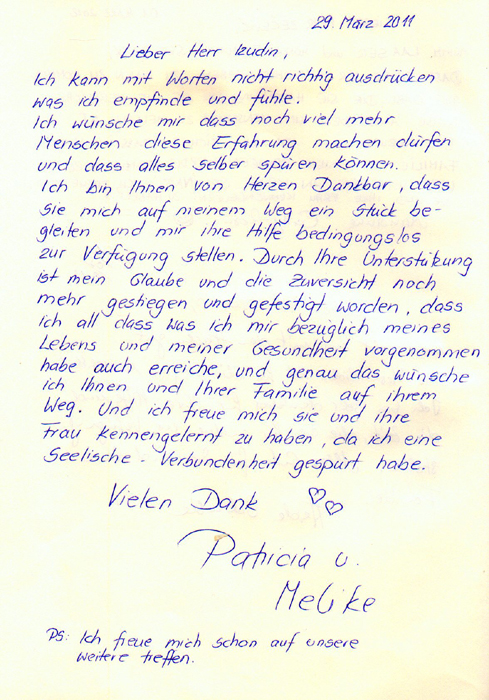 29. März 2011
Lieber Herr Izudin,
Ich kann mit Worten nicht richtig ausdrücken
was ich empfinde und fühle.
Ich wünsche mir dass noch viel mehr
Menschen diese Erfahrung machen dürfen
und dass alles selber spüren können.
Ich bin Ihnen von Herzen Dankbar, dass
sie mich auf meinem Weg ein Stück be-
gleiten und mir ihre Hilfe bedingungslos
zur Verfügung stellen. Durch Ihre Unterstützung
ist mein Glaube und die Zuversicht noch
mehr gestiegen und gefestigt worden, dass
ich all dass was ich mir bezüglich meines
Lebens und meiner Gesundheit vorgenommen
habe auch erreiche, und genau das wünsche
ich Ihnen und Ihrer Familie auf ihrem
Weg. Und ich freue mich sie und ihre
Frau kennengelernt zu haben, da ich eine
Seelische - Verbundenheit gespürt habe.
Vielen Dank
Patricia u.
Melike
PS: Ich freue mich schon auf unsere
weitere treffen.